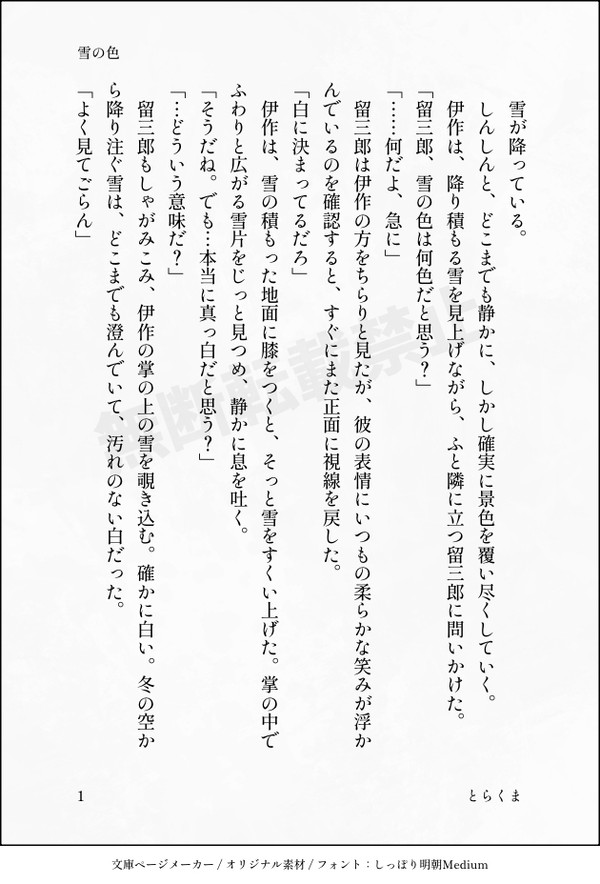 雪の色
雪が降っている。
しんしんと、どこまでも静かに、しかし確実に景色を覆い尽くしていく。
伊作は、降り積もる雪を見上げながら、ふと隣に立つ留三郎に問いかけた。
「留三郎、雪の色は何色だと思う？」
「……何だよ、急に」
留三郎は伊作の方をちらりと見たが、彼の表情にいつもの柔らかな笑みが浮か
んでいるのを確認すると、すぐにまた正面に視線を戻した。
「白に決まってるだろ」
伊作は、雪の積もった地面に膝をつくと、そっと雪をすくい上げた。掌の中で
ふわりと広がる雪片をじっと見つめ、静かに息を吐く。
「そうだね。でも…本当に真っ白だと思う？」
「…どういう意味だ？」
留三郎もしゃがみこみ、伊作の掌の上の雪を覗き込む。確かに白い。冬の空か
ら降り注ぐ雪は、どこまでも澄んでいて、汚れのない白だった。
「よく見てごらん」
無断転載禁止
1
とらくま
文庫ページメーカー / オリジナル素材 / フォント：しっぽり明朝Medium